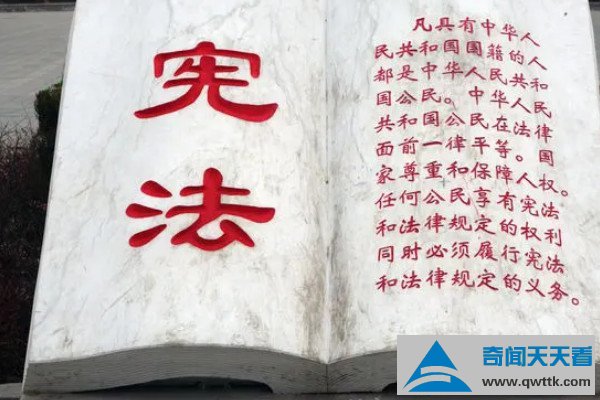 宪
法
凡具有中华人
民共和国国籍的人
都是中华人民共和
国公民。中华人民
共和国公民在法律
面前一律平等。国
家尊重和保障人权。
任何公民享有宪法
和法律规定的权利
同时必须履行宪法
和法律规定的义务。
奇闻天天看
www.qwttk.com